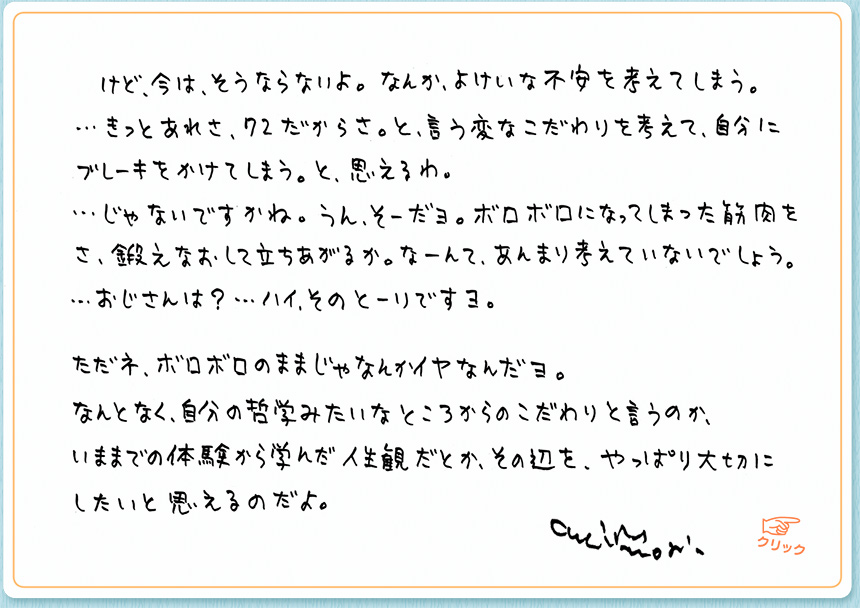 けど、今は、そうならないよ。なんか、よけいな不安を考えてしまう。
…きっとあれさ、72だからさ。と、言う変なこだわりを考えて、自分に
ブレーキをかけてしまう。と、思えるわ。
…じゃないですかね。うん、そーだヨ。ボロボロになってしまった筋肉を
さ、鍛えなおして立ちあがるか。なーんて、あんまり考えていないでしょう。
…おじさんは？…ハイ、そのとーりですヨ。
ただネ、ボロボロのままじゃなんかイヤなんだヨ。
なんとなく、自分の哲学みたいなところからのこだわりと言うのか、
いままでの体験から学んだ人生観だとか、その辺を、やっぱり大切に
したいと思えるのだよ。
クリック